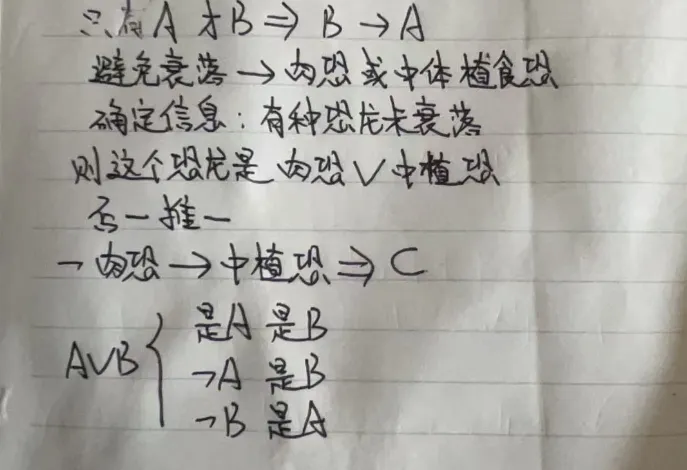 只有A才B⇒B→A
避免衰落→肉恐或中体植食恐
确定信息:有种恐龙未衰落
则这个恐龙是肉恐∨中植恐
否一推一
¬肉恐→中植恐⇒C
A∨B{是A是B
¬A是B
¬B是A